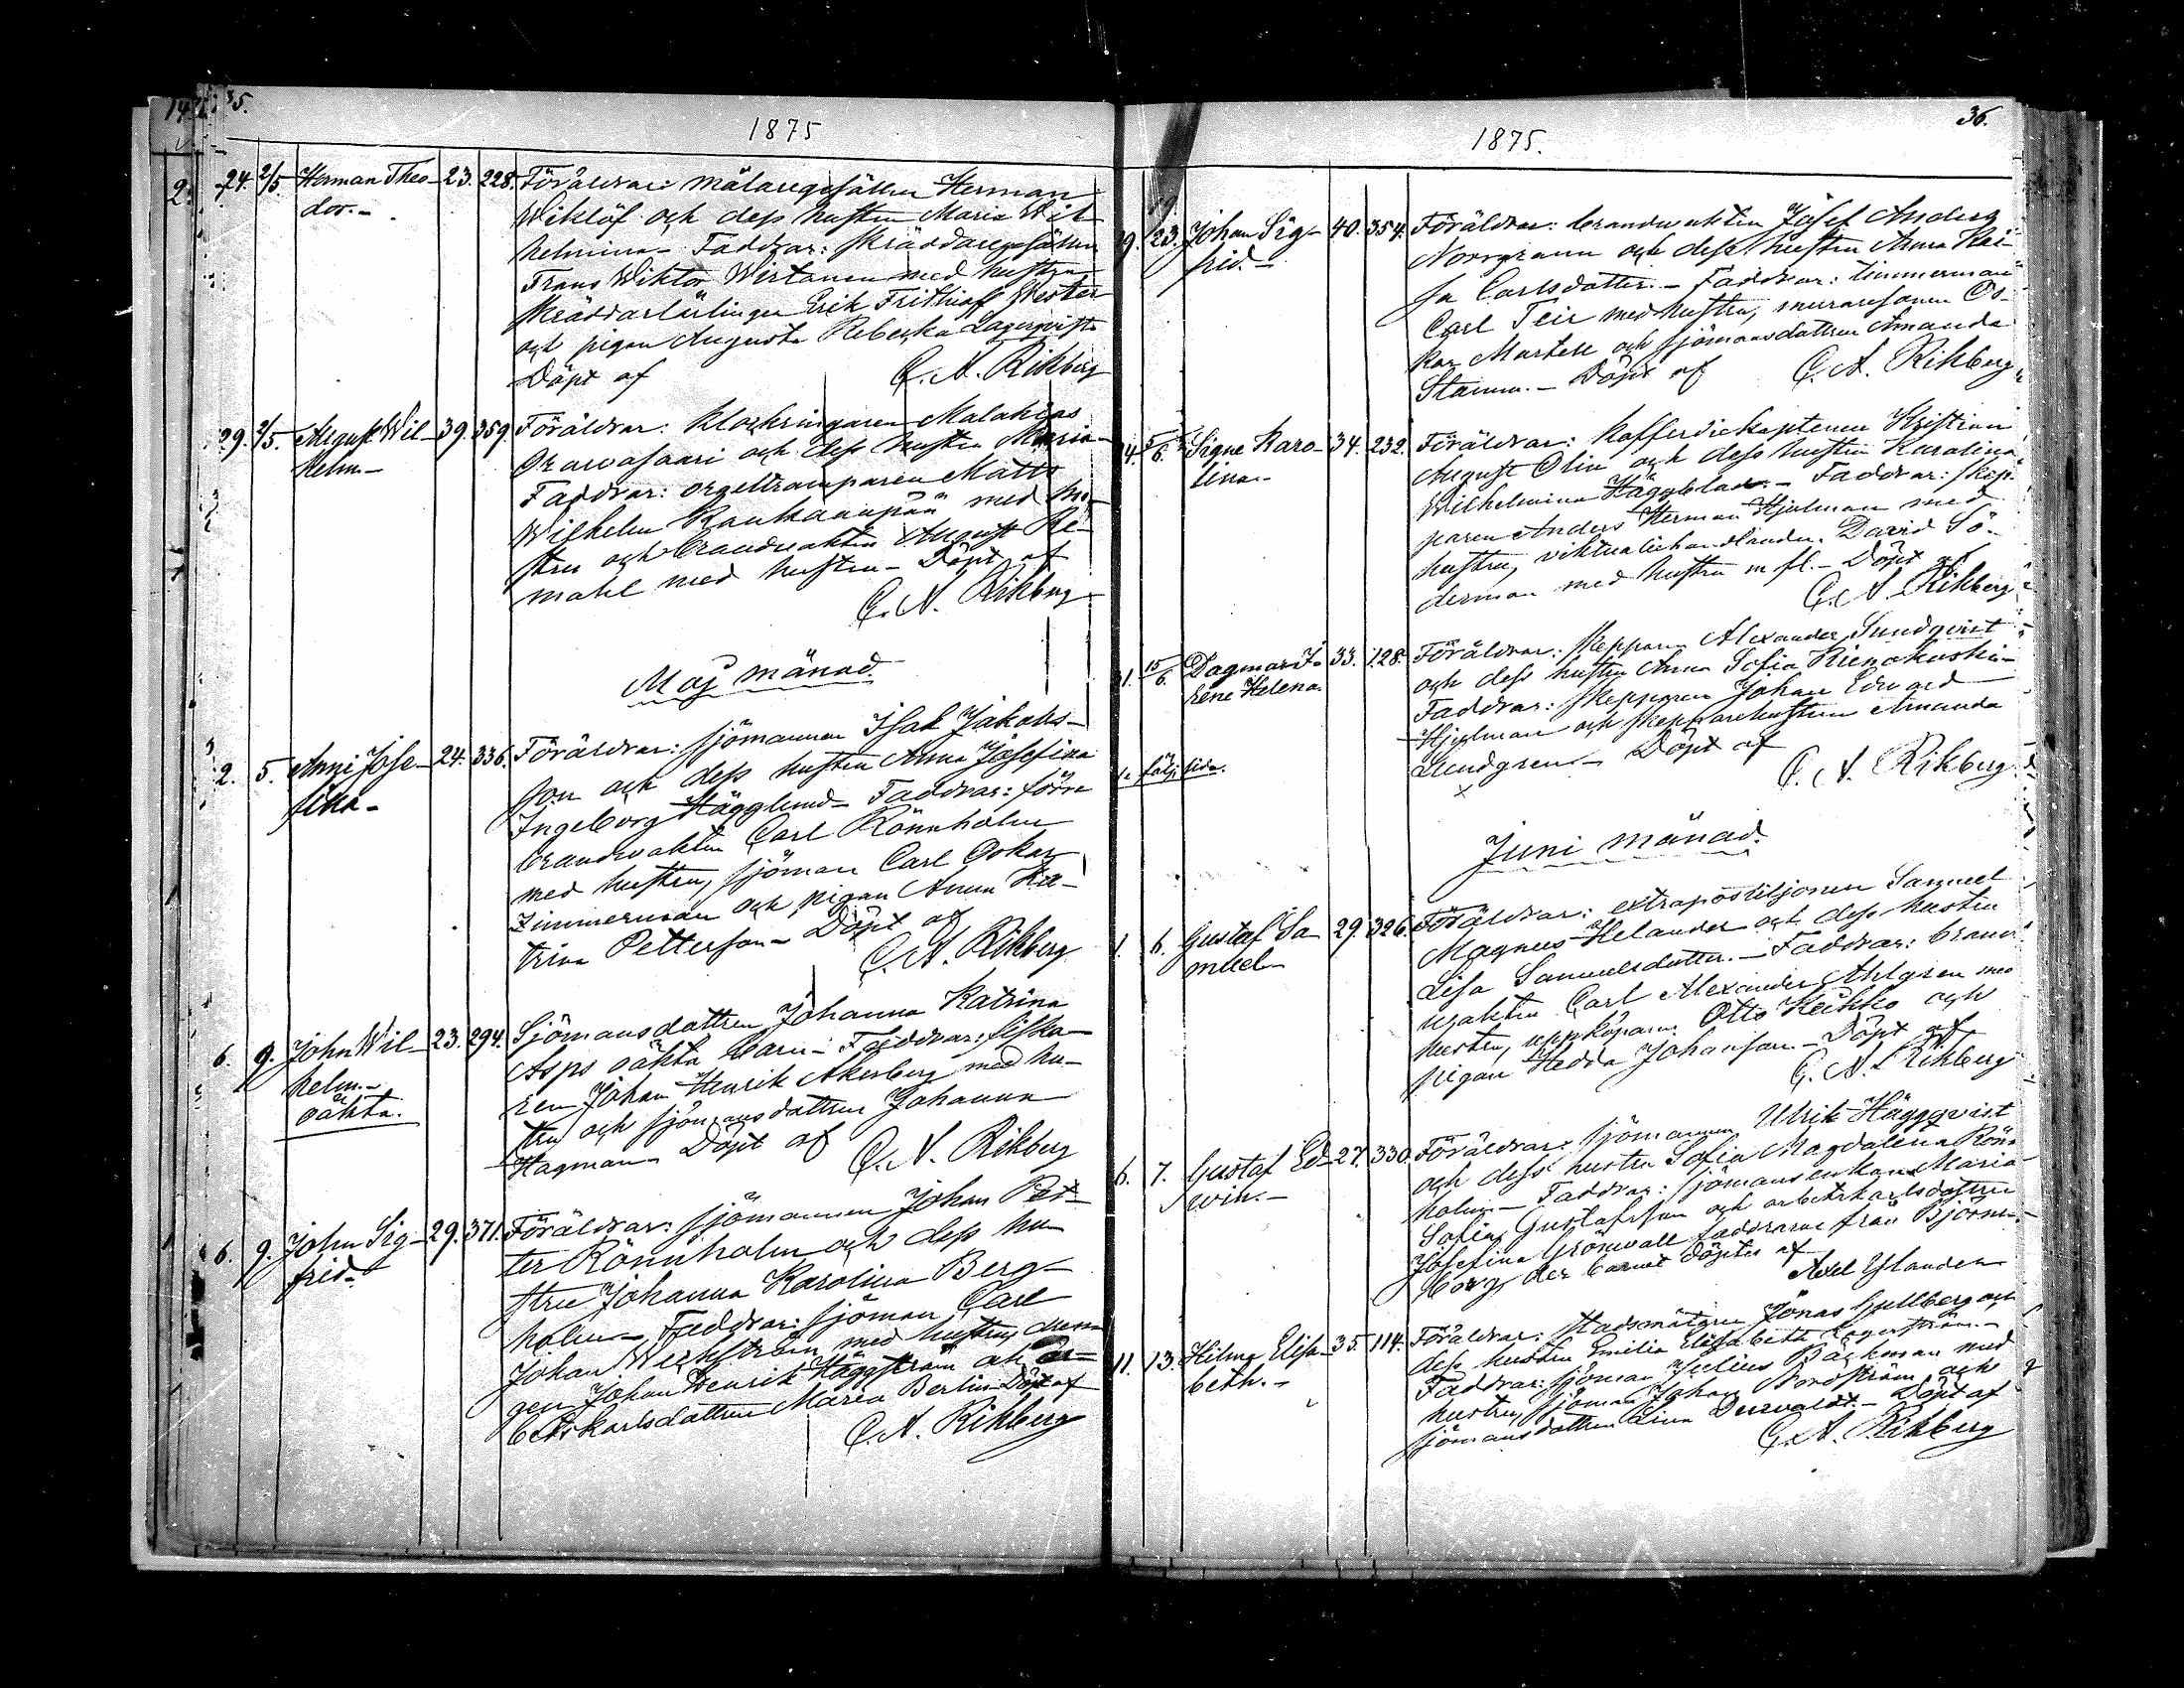 35.
1875
24. 2/5 Herman Theo- 23. 228. Föräldrar: målaregesällen Herman
dor.- Wiklöf och dess hustru Maria Wil-
helmina- Faddrar: skräddaregesällen
Frans Wiktor Wirtanen med hustru,
skräddarlärlingen Erik Frithiof Wester
och pigan Augusta Rebecka Lagerqvist.
Döpt af C. A. Rikberg
29. 2/5. August Wil- 39. 359. Föräldrar: klockringaren Malakias
helm.- Orawasaari och dess hustru Maria-
Faddrar: orgeltramparen Matts
Wilhelm Raukaanpää med hu-
stru och brandvakten August Re-
mahl med hustru- Döpt af
C. A. Rikberg
Maj månad.
2. 5. Anni Jose- 24. 336. Föräldrar: sjömannen Isak Jakobs-
fina- son och dess hustru Anna Josefina
Ingeborg Hägglund- Faddrar: förre
brandvakten Carl Rönnholm
med hustru, sjöman Carl Oskar
Zimmerman och pigan Anna Ka-
trina Petterson- Döpt af
C. A. Rikberg
6. 9. John Wil- 23. 294. Sjömansdottren Johanna Katrina
helm.- Asps oäkta barn- Faddrar: fiska-
oäkta. ren Johan Henrik Åkerberg med hu-
stru och sjömansdottren Johanna
Hagman- Döpt af C. A. Rikberg
6. 9. John Sig- 29. 371. Föräldrar: sjömannen Johan Pet-
frid- ter Rönnholm och dess hu-
stru Johanna Karolina Berg-
holm- Faddrar: sjöman Carl
Johan Weckström med hustru, drän-
gen Johan Henrik Häggström och ar-
betskarlsdottren Maria Berlin- Döpt af
C. A. Rikberg
36.
1875.
19. 23. Johan Sig- 40. 354. Föräldrar: brandvakten Josef Anders
frid.- Norrgrann och dess hustru Anna Kai-
sa Carlsdotter.- Faddrar: timmerman
Carl Teir med hustru, muraresonen Os-
kar Martell och sjömansdottren Amanda
Stamm.- Döpt af C. A. Rikberg
5/6. Signe Karo- 34. 232. Föräldrar: kofferdikaptenen Kristian
lina- August Olin och dess hustru Karolina
Wilhelmina Häggblad.- Faddrar: skep-
paren Anders Herman Hjelman med
hustru, viktualiehandlanden David Sö-
derman med hustru m fl.- Döpt af
C. A. Rikberg
15/6. Dagmar I- 33. 128. Föräldrar: skeppare Alexander Sundqvist
rene Helena och dess hustru Anna Sofia Rienokoski-
Faddrar: skepparen Johan Edvard
Hjelman och skepparehustrun Amanda
Lundgren- Döpt af
C. A. Rikberg
följ. sida.
Juni månad.
1. 6. Gustaf Sa- 29. 326. Föräldrar: extrapostiljonen Samuel
muel- Magnus Helander och dess hustru
Lisa Samuelsdotter.- Faddrar: brand-
vakten Carl Alexander Ahlgren med
hustru, uppköparen Otto Keikko och
pigan Hedda Johanson- Döpt af
C. A. Rikberg
6. 7. Gustaf Ed- 27. 330. Föräldrar: sjömannen Ulrik Häggqvist
win.- och dess hustru Sofia Magdalena Rönn-
holm- Faddrar: sjömansenkan Maria
Sofia Gustafsson och arbetskarlsdottren
Josefina Grönwall faddrarne från Björne-
borg der barnet döptes af
Axel Islander
11. 13. Hilma Elisa- 35. 114. Föräldrar: stadsmätare Jonas Gyllberg och
beth.- dess hustru Emilia Elisabeth Lagerström.-
Faddrar: sjöman Julius Bäckman med
hustru, sjöman Johan Nordström och
sjömansdottren Lina Durvaldt.- Döpt af
C. A. Rikberg